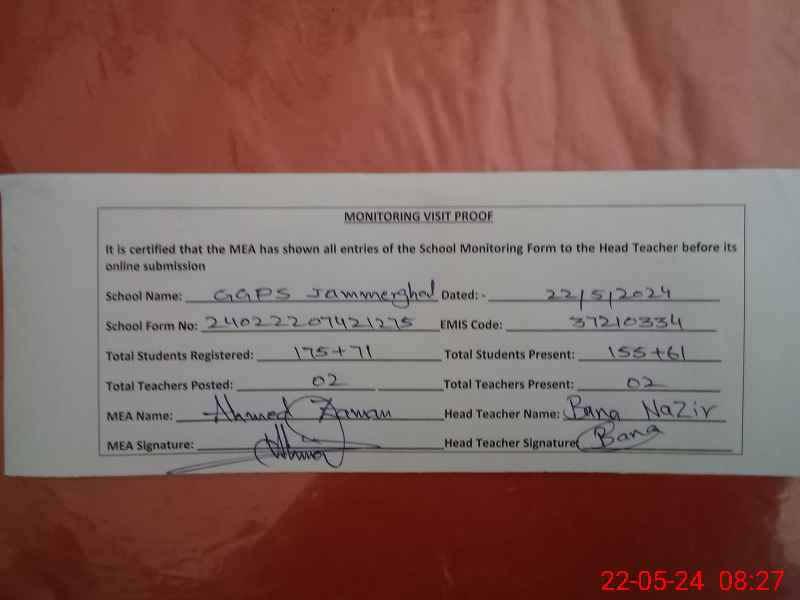 MONITORING VISIT PROOF
It is certified that the MEA has shown all entries of the School Monitoring Form to the Head Teacher before its
online submission
School Name: GGPS Jammerghal Dated: - 22/5/2024
School Form No: 24022207421275 EMIS Code: 37210334
Total Students Registered: 175+71 Total Students Present: 155+61
Total Teachers Posted: 02 Total Teachers Present: 02
MEA Name: Ahmed Zaman Head Teacher Name: Bana Nazir
MEA Signature: Head Teacher Signature Bana
22-05-24 08:27